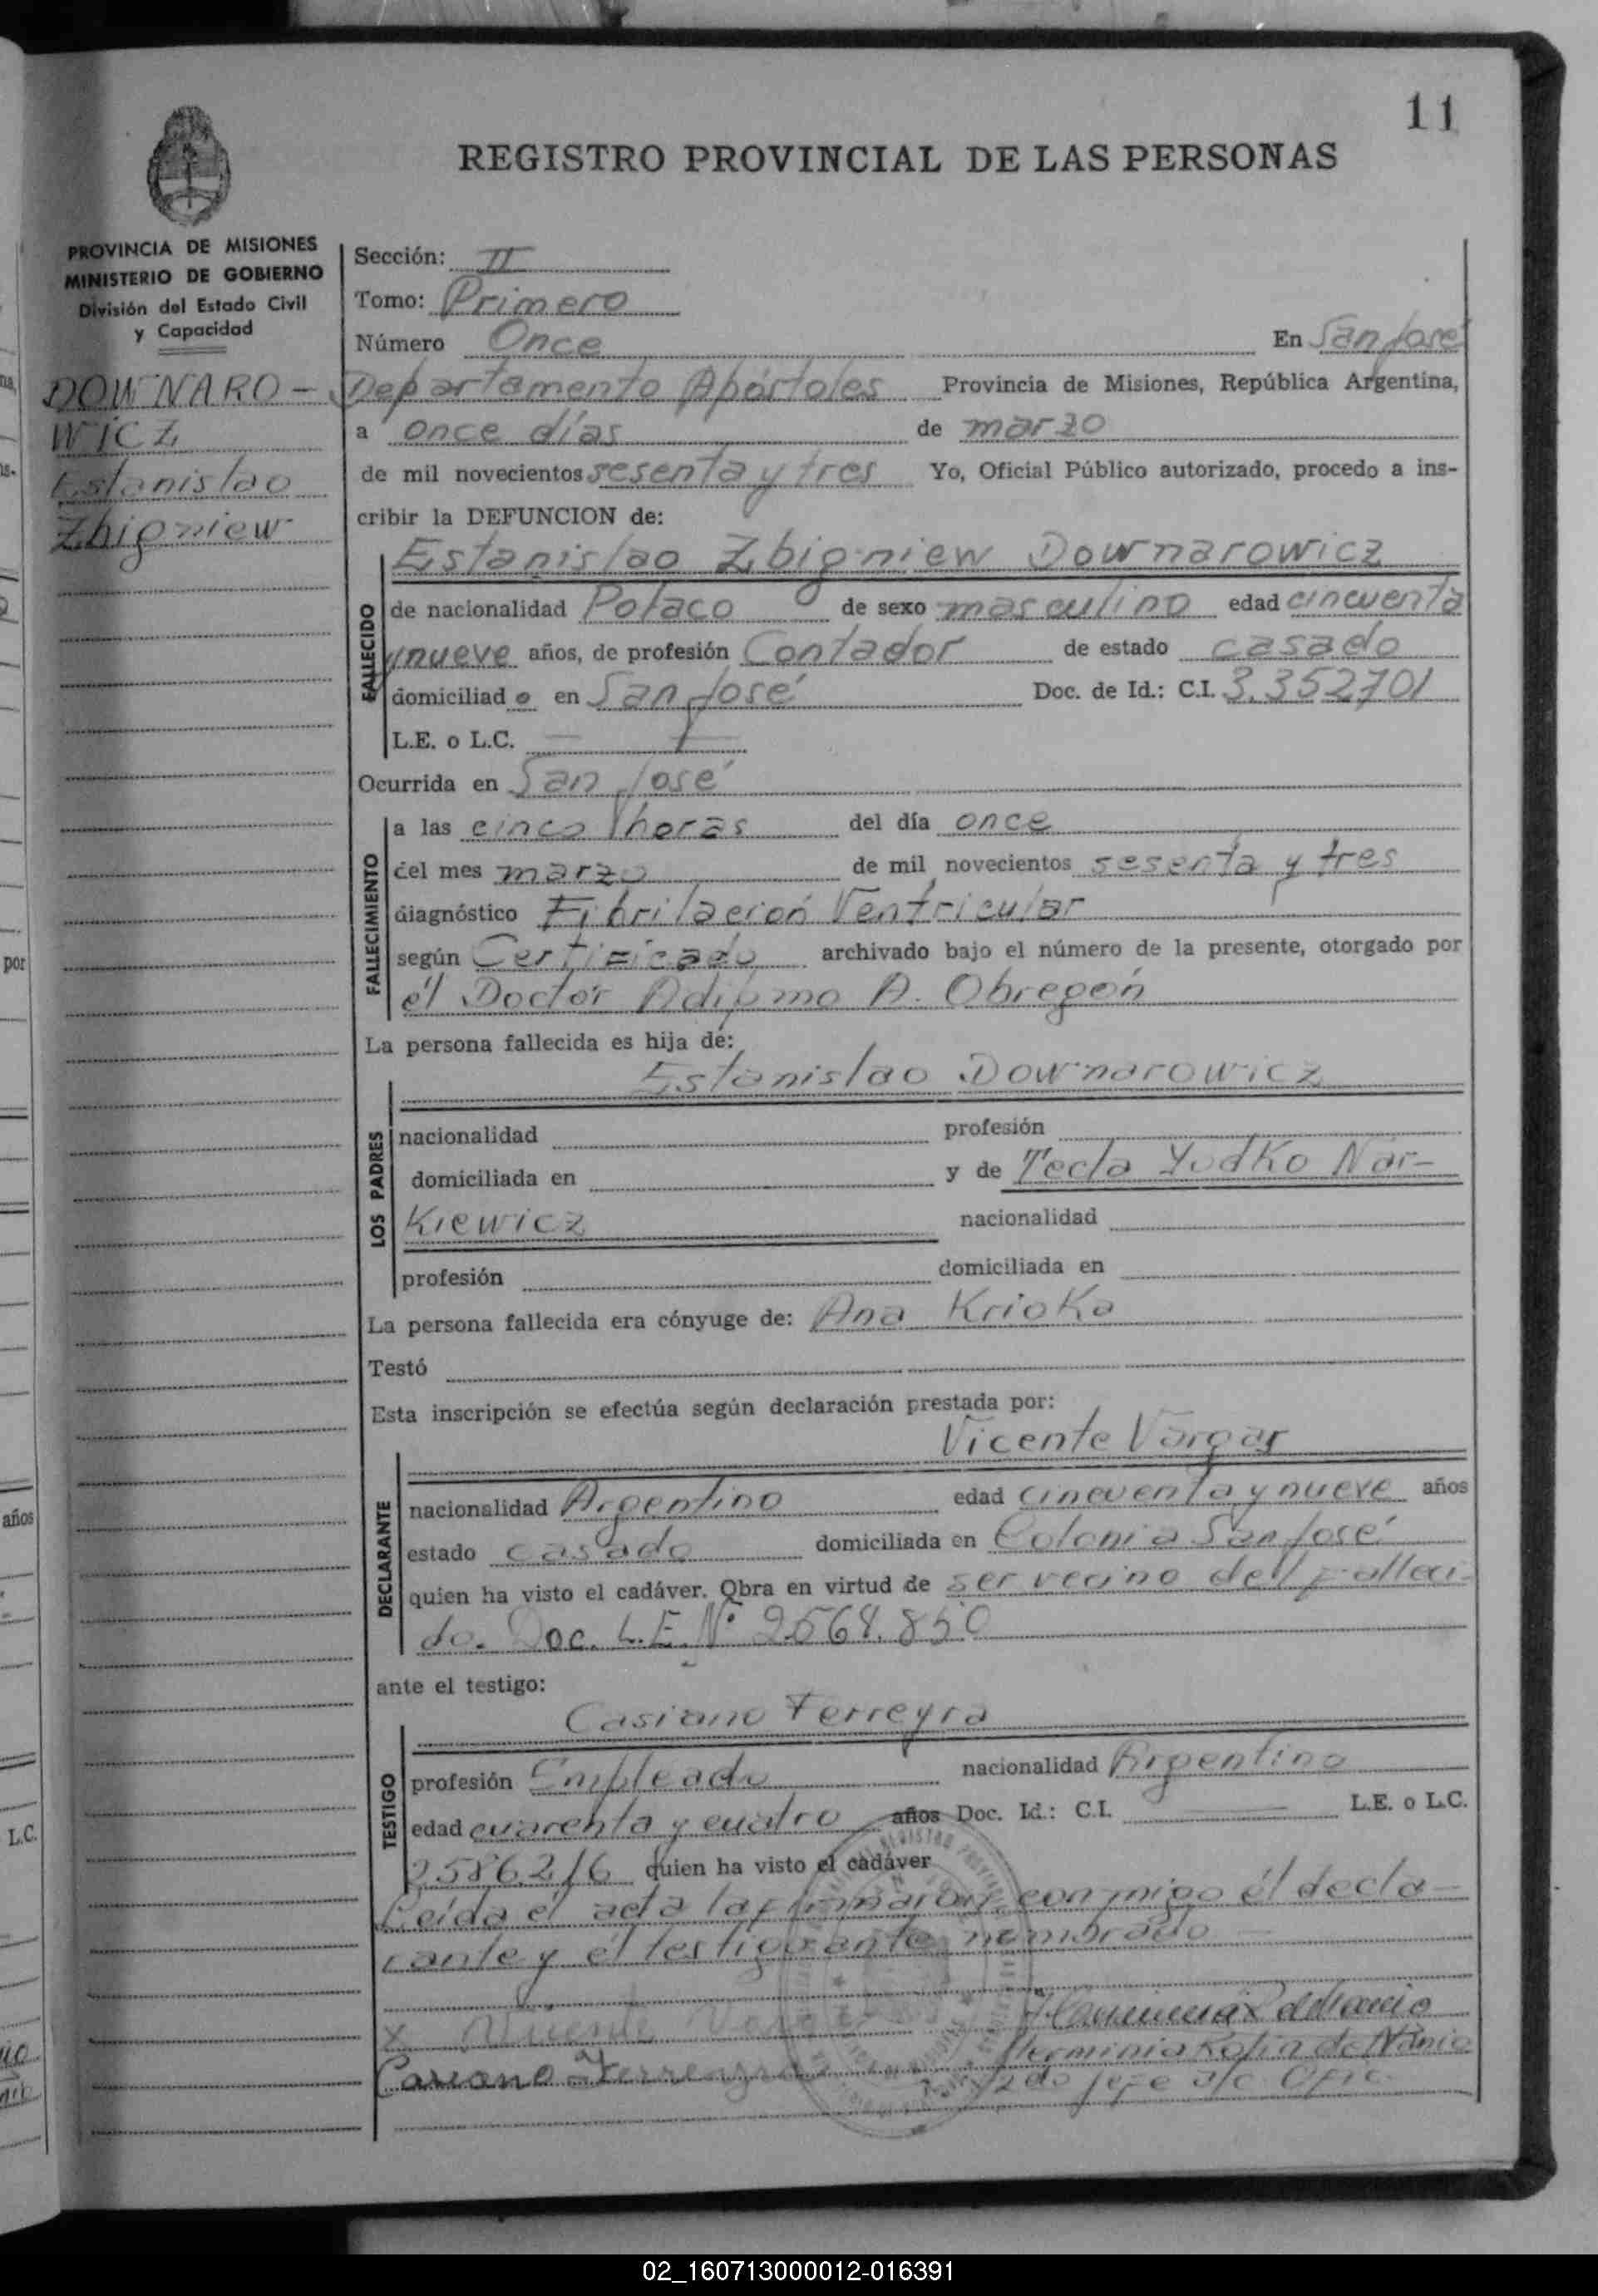 11
REGISTRO PROVINCIAL DE LAS PERSONAS
PROVINCIA DE MISIONES
MINISTERIO DE GOBIERNO
División del Estado Civil
y Capacidad
DOWNARO-
WICZ
Estanislao
Zbigniew
Sección: II
Tomo: Primero
Número Once En San José
Departamento Apóstoles Provincia de Misiones, República Argentina,
a once días de marzo
de mil novecientos sesenta y tres Yo, Oficial Público autorizado, procedo a ins-
cribir la DEFUNCION de:
Estanislao Zbigniew Downarowicz
FALLECIDO
de nacionalidad Polaco de sexo masculino edad cincuenta
y nueve años, de profesión Contador de estado casado
domiciliado en San José Doc. de Id.: C.I. 3.352701
L.E. o L.C. —
Ocurrida en San José
FALLECIMIENTO
a las cinco horas del día once
del mes marzo de mil novecientos sesenta y tres
diagnóstico Fibrilación Ventricular
según Certificado archivado bajo el número de la presente, otorgado por
él Doctor A. Obregón
La persona fallecida es hija de:
Estanislao Downarowicz
LOS PADRES
nacionalidad profesión
domiciliada en y de Tecla Yudko Nar-
Kiewicz nacionalidad
profesión domiciliada en
La persona fallecida era cónyuge de: Ana Krioka
Testó
Esta inscripción se efectúa según declaración prestada por:
Vicente Vargas
DECLARANTE
nacionalidad Argentino edad cincuenta y nueve años
estado casado domiciliada en Colonia San José
quien ha visto el cadáver. Obra en virtud de ser vecino del falleci-
do. Doc. L.E. Nº 2568.850
ante el testigo:
Casiano Ferreyra
TESTIGO
profesión Empleado nacionalidad Argentino
edad cuarenta y cuatro años Doc. Id.: C.I. — L.E. o L.C.
2586216 quien ha visto el cadáver
Leída el acta la firmaron conmigo él decla-
rante y él testigo ante nombrado
x Vicente Vargas
Casiano Ferreyra
Herminia de
2do Jefe a/c Ofic.
na,
ns.
por
años
L.C.
02_160713000012-016391